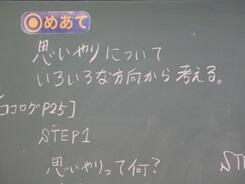 めあて
思いやりについて
いろいろな方向から考える。
ココログP25]
STEP1
思いやりって何?
ST